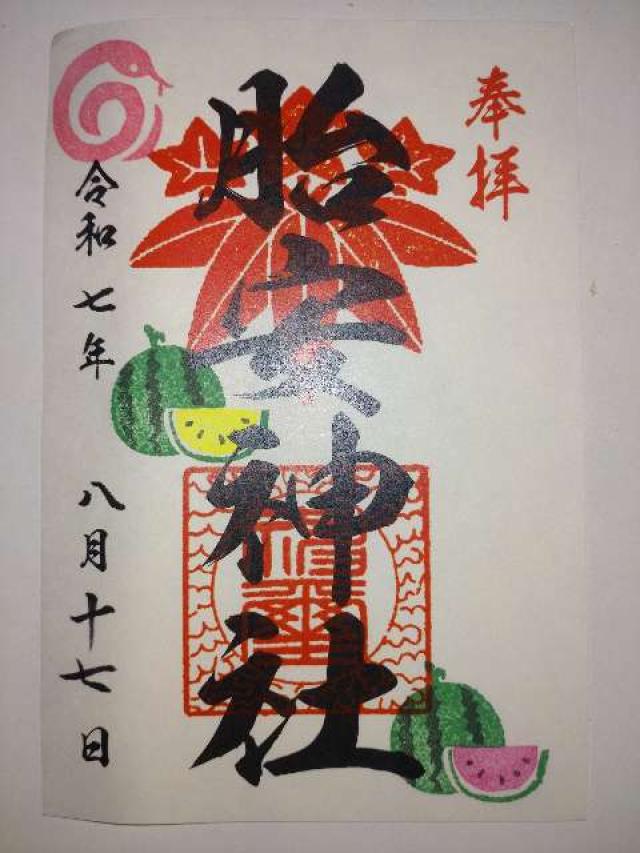 奉拝
胎安神社
令和七年 八月十七日